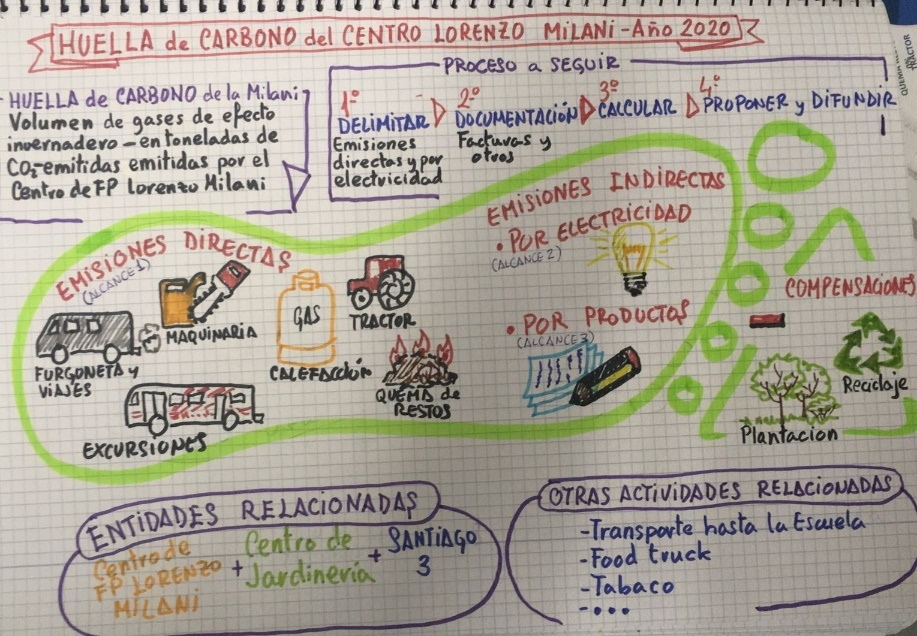 HUELLA de CARBONO del CENTRO LORENZO MiLANi - Año 2020
PROCESO a SEGUIR
HUELLA de CARBONO de la Milani
Volumen de gases de efecto
invernadero - en toneladas de
CO₂- emitidas emitidas por el
Centro de FP Lorenzo Milani
1º
DELIMITAR
Emisiones
directas y por
electricidad
2º
DOCUMENTACIÓN
Facturas y
otros
3º
CALCULAR
4º
PROPONER y DIFUNDIR
EMISIONES DIRECTAS
(ALCANCE 1)
MAQUINARIA
FURGONETA y
VIAJES
EXCURSIONES
GAS
CALEFACCIÓN
TRACTOR
QUEMA de
RESTOS
EMISIONES INDIRECTAS
• POR ELECTRICIDAD
(ALCANCE 2)
• POR PRODUCTOS
(ALCANCE 3)
COMPENSACIONES
Plantacion
Reciclaje
ENTIDADES RELACIONADAS
Centro de
FP LORENZO
MILANI
+
Centro de
Jardinería
+
SANTIAGO
3
OTRAS ACTIVIDADES RELACIONADAS
- Transporte hasta la Escuela
- Food truck
- Tabaco
- ...
TRACTOR